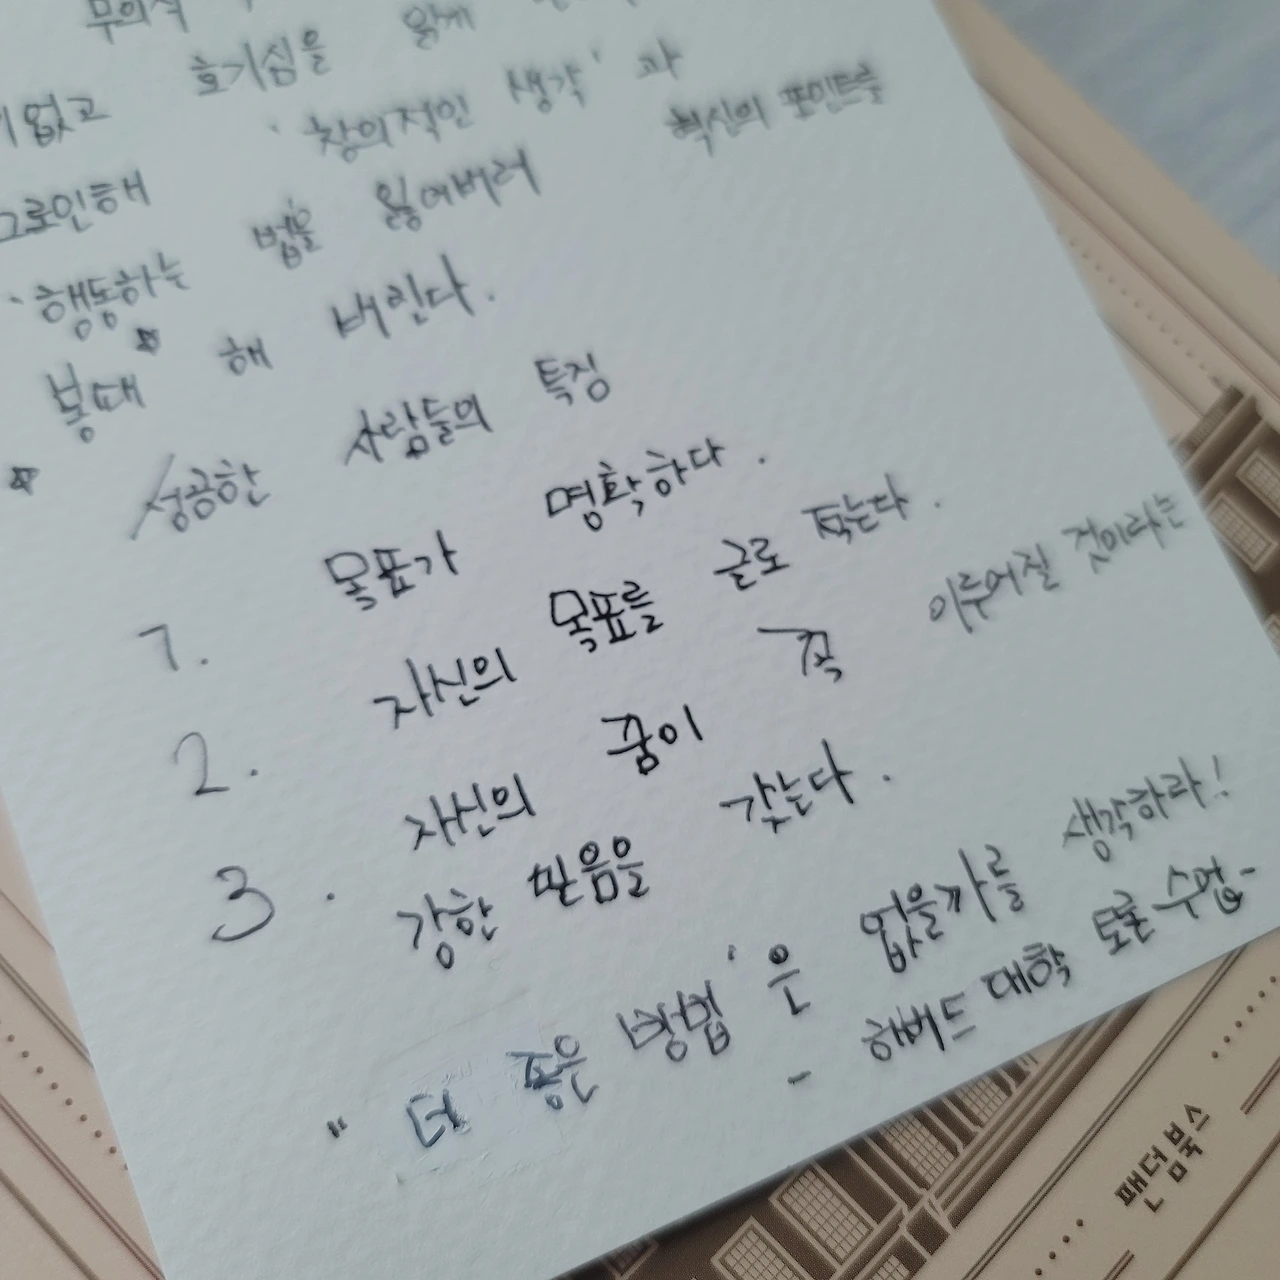 무의식
없고 호기심을 잃게
그로인해 '창의적인 생각'과
'행동하는 법을 잃어버려 혁신의 포인트를
해 버린다.
☆ 성공한 사람들의 특징
1. 목표가 명확하다.
2. 자신의 목표를 글로 적는다.
3. 자신의 꿈이 꼭 이루어질 것이라는
강한 믿음을 갖는다.
"더 좋은 방법'은 없을까를 생각하라!
- 하버드 대학 토론 수업-
팬덤북스